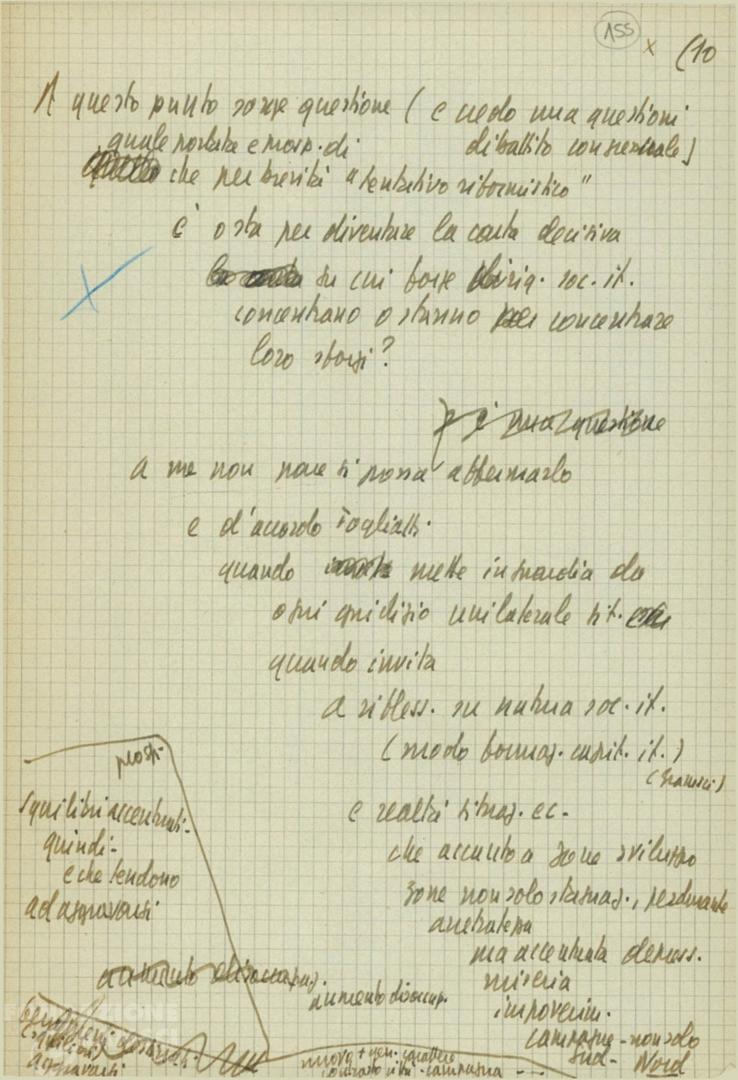 155 x (10
A questo punto sorge questione (e credo una questioni
quale portata e prosp. di dibattito congressuale)
che per brevità "tentativo riformistico"
è o sta per diventare la carta decisiva
su cui forze dirig. soc. it.
concentrano o stanno concentrare
loro sforzi?
è questione
a me non pare si possa affermarlo
e d'accordo Togliatti.
quando mette in guardia da
ogni giudizio unilaterale sit.
quando invita
a rifless. su natura soc. it.
(modo formaz. capit. it.)
(Gramsci)
e realtà situaz. ec.
che accanto a zone sviluppo
zone non solo stagnaz., perdurante
arretratezza
ma accentuata depress.
miseria
impoverim.
campagne - non solo
Sud - Nord
prosp.
squilibri accentuati -
quindi -
e che tendono
ad aggravarsi
aumento disoccupaz.
aumento disoccup.
aggravarsi
nuovo + gen. carattere
contrasto città - campagna - - -